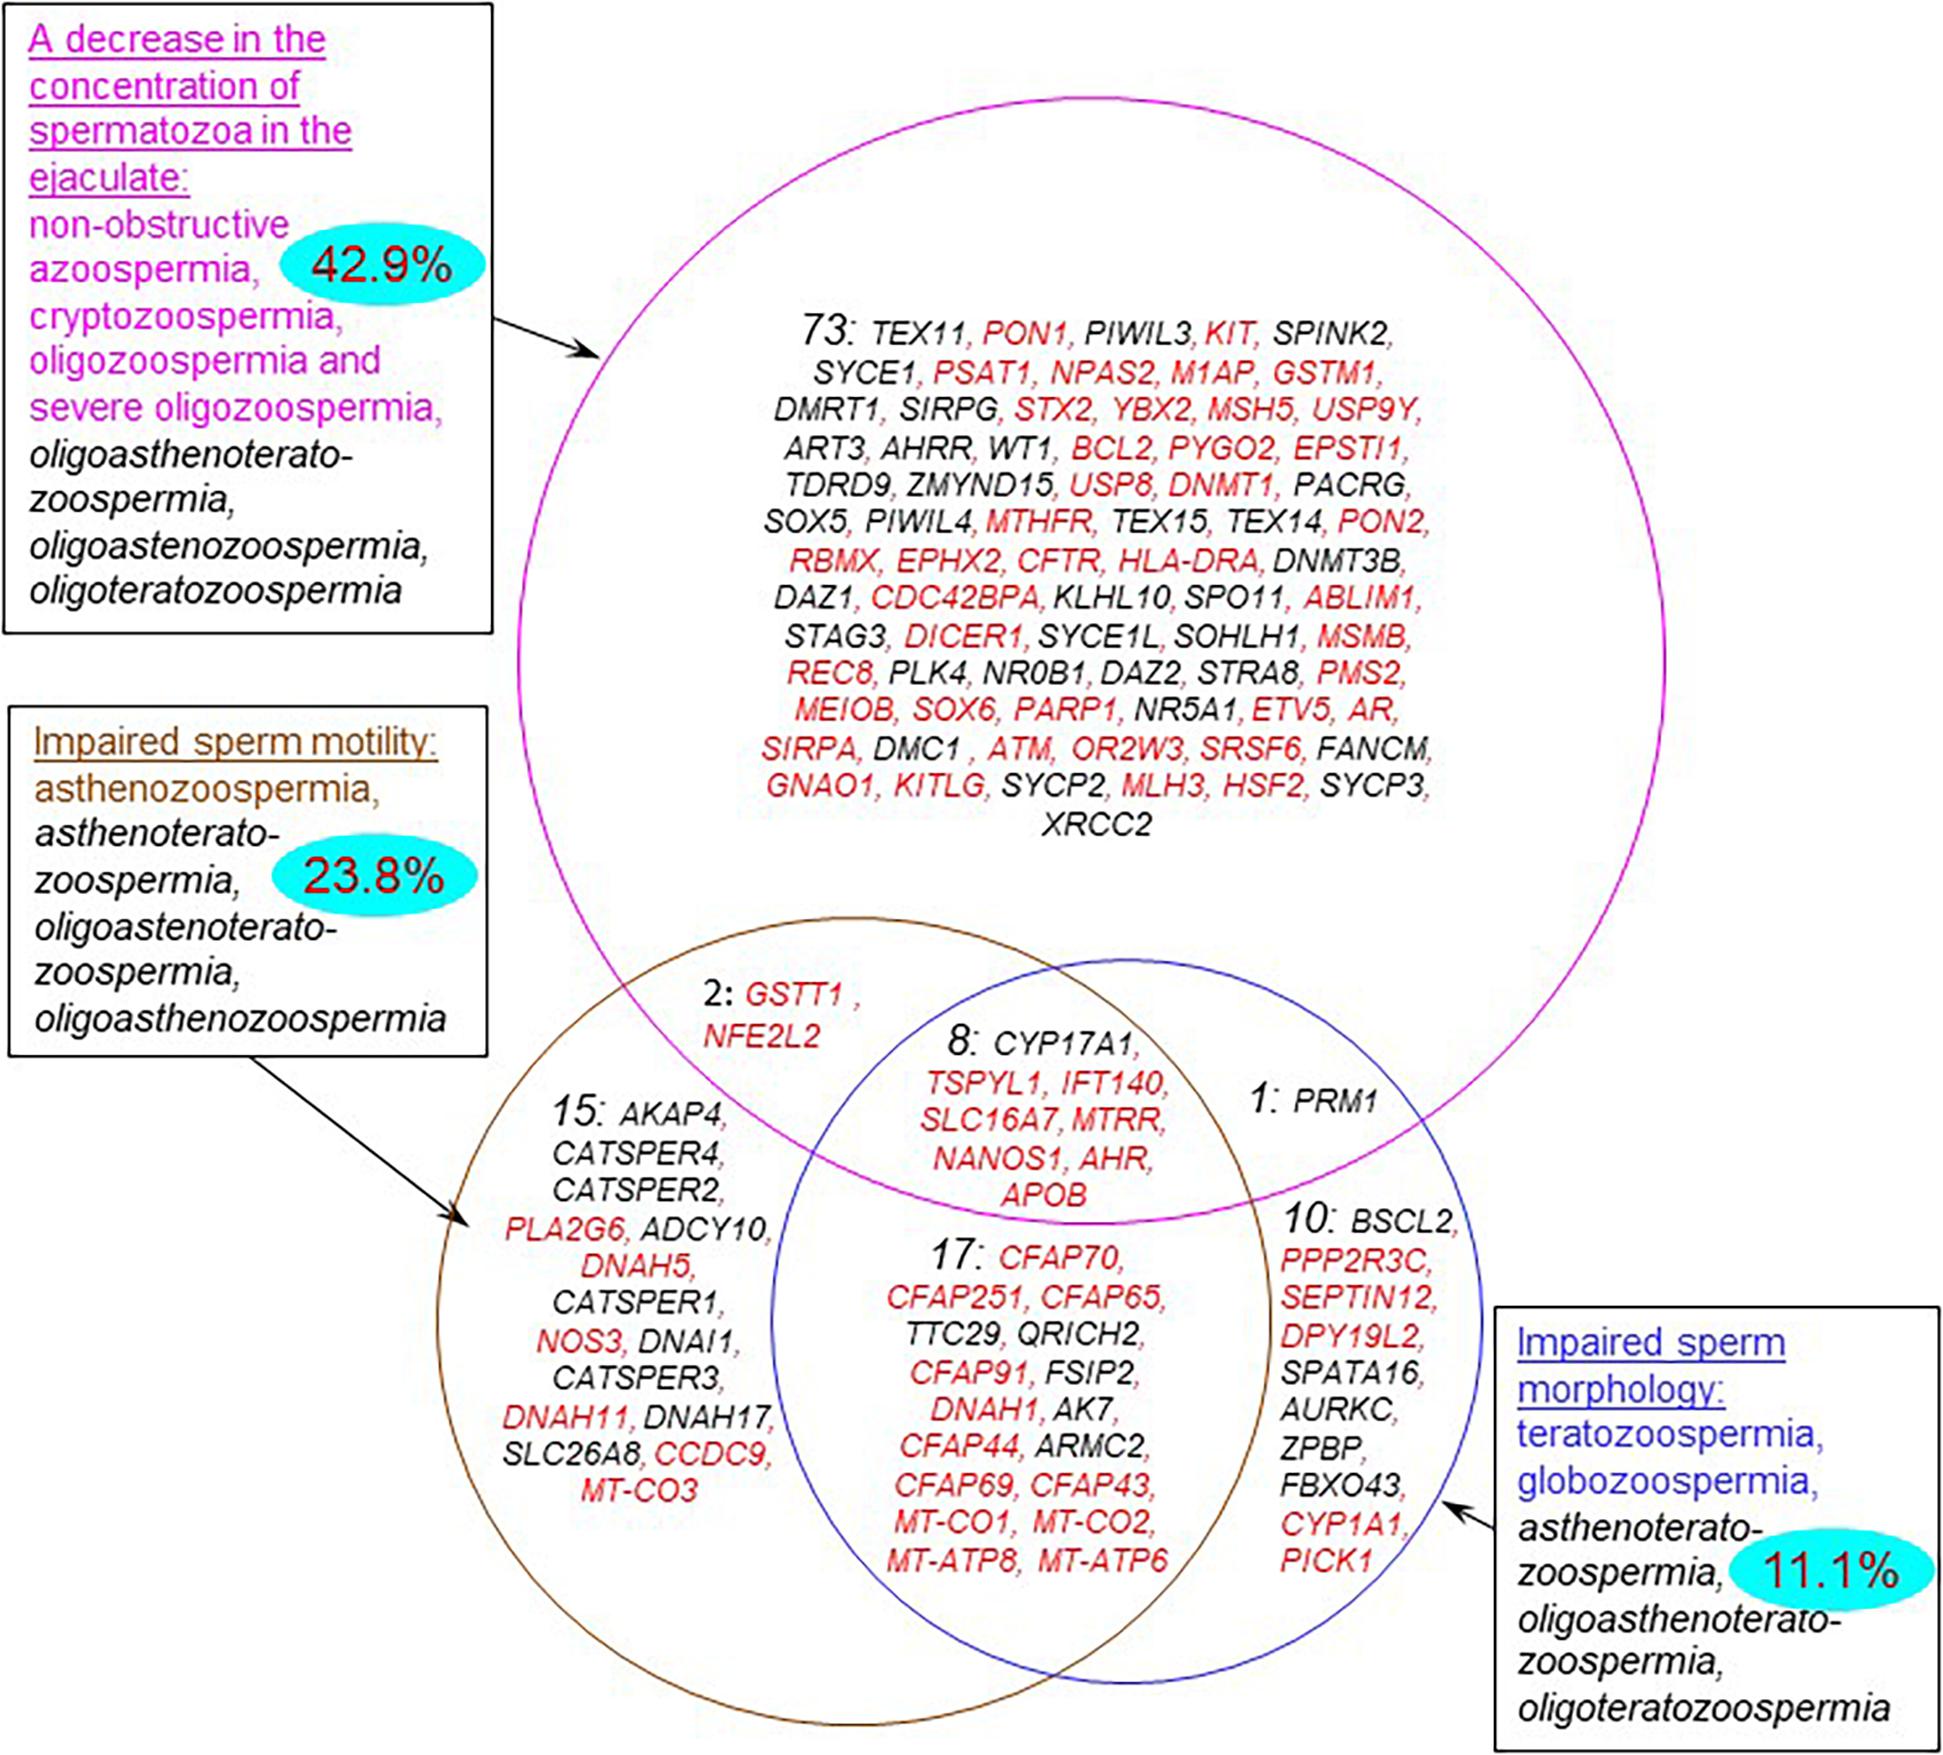 A decrease in the
concentration of
spermatozoa in the
ejaculate:
non-obstructive
azoospermia,
42.9%
cryptozoospermia,
oligozoospermia and
severe oligozoospermia,
oligoasthenoterato-
zoospermia,
oligoastenozoospermia,
oligoteratozoospermia
73: TEX11, PON1, PIWIL3, KIT, SPINK2,
SYCE1, PSAT1, NPAS2, M1AP, GSTM1,
DMRT1, SIRPG, STX2, YBX2, MSH5, USP9Y,
ART3, AHRR, WT1, BCL2, PYGO2, EPSTI1,
TDRD9, ZMYND15, USP8, DNMT1, PACRG,
SOX5, PIWIL4, MTHFR, TEX15, TEX14, PON2,
RBMX, EPHX2, CFTR, HLA-DRA, DNMT3B,
DAZ1, CDC42BPA, KLHL10, SPO11, ABLIM1,
STAG3, DICER1, SYCE1L, SOHLH1, MSMB,
REC8, PLK4, NR0B1, DAZ2, STRA8, PMS2,
MEIOB, SOX6, PARP1, NR5A1, ETV5, AR,
SIRPA, DMC1 , ATM, OR2W3, SRSF6, FANCM,
GNAO1, KITLG, SYCP2, MLH3, HSF2, SYCP3,
XRCC2
Impaired sperm motility:
asthenozoospermia,
asthenoterato-
zoospermia,
23.8%
oligoastenoterato-
zoospermia,
oligoasthenozoospermia
2: GSTT1 ,
NFE2L2
8: CYP17A1,
TSPYL1, IFT140,
SLC16A7, MTRR,
NANOS1, AHR,
APOB
1: PRM1
15: AKAP4,
CATSPER4,
CATSPER2,
PLA2G6, ADCY10,
DNAH5,
CATSPER1,
NOS3, DNAI1,
CATSPER3,
DNAH11, DNAH17,
SLC26A8, CCDC9,
MT-CO3
17: CFAP70,
CFAP251, CFAP65,
TTC29, QRICH2,
CFAP91, FSIP2,
DNAH1, AK7,
CFAP44, ARMC2,
CFAP69, CFAP43,
MT-CO1, MT-CO2,
MT-ATP8, MT-ATP6
10: BSCL2,
PPP2R3C,
SEPTIN12,
DPY19L2,
SPATA16,
AURKC,
ZPBP,
FBXO43,
CYP1A1,
PICK1
Impaired sperm
morphology:
teratozoospermia,
globozoospermia,
asthenoterato-
zoospermia,
11.1%
oligoasthenoterato-
zoospermia,
oligoteratozoospermia